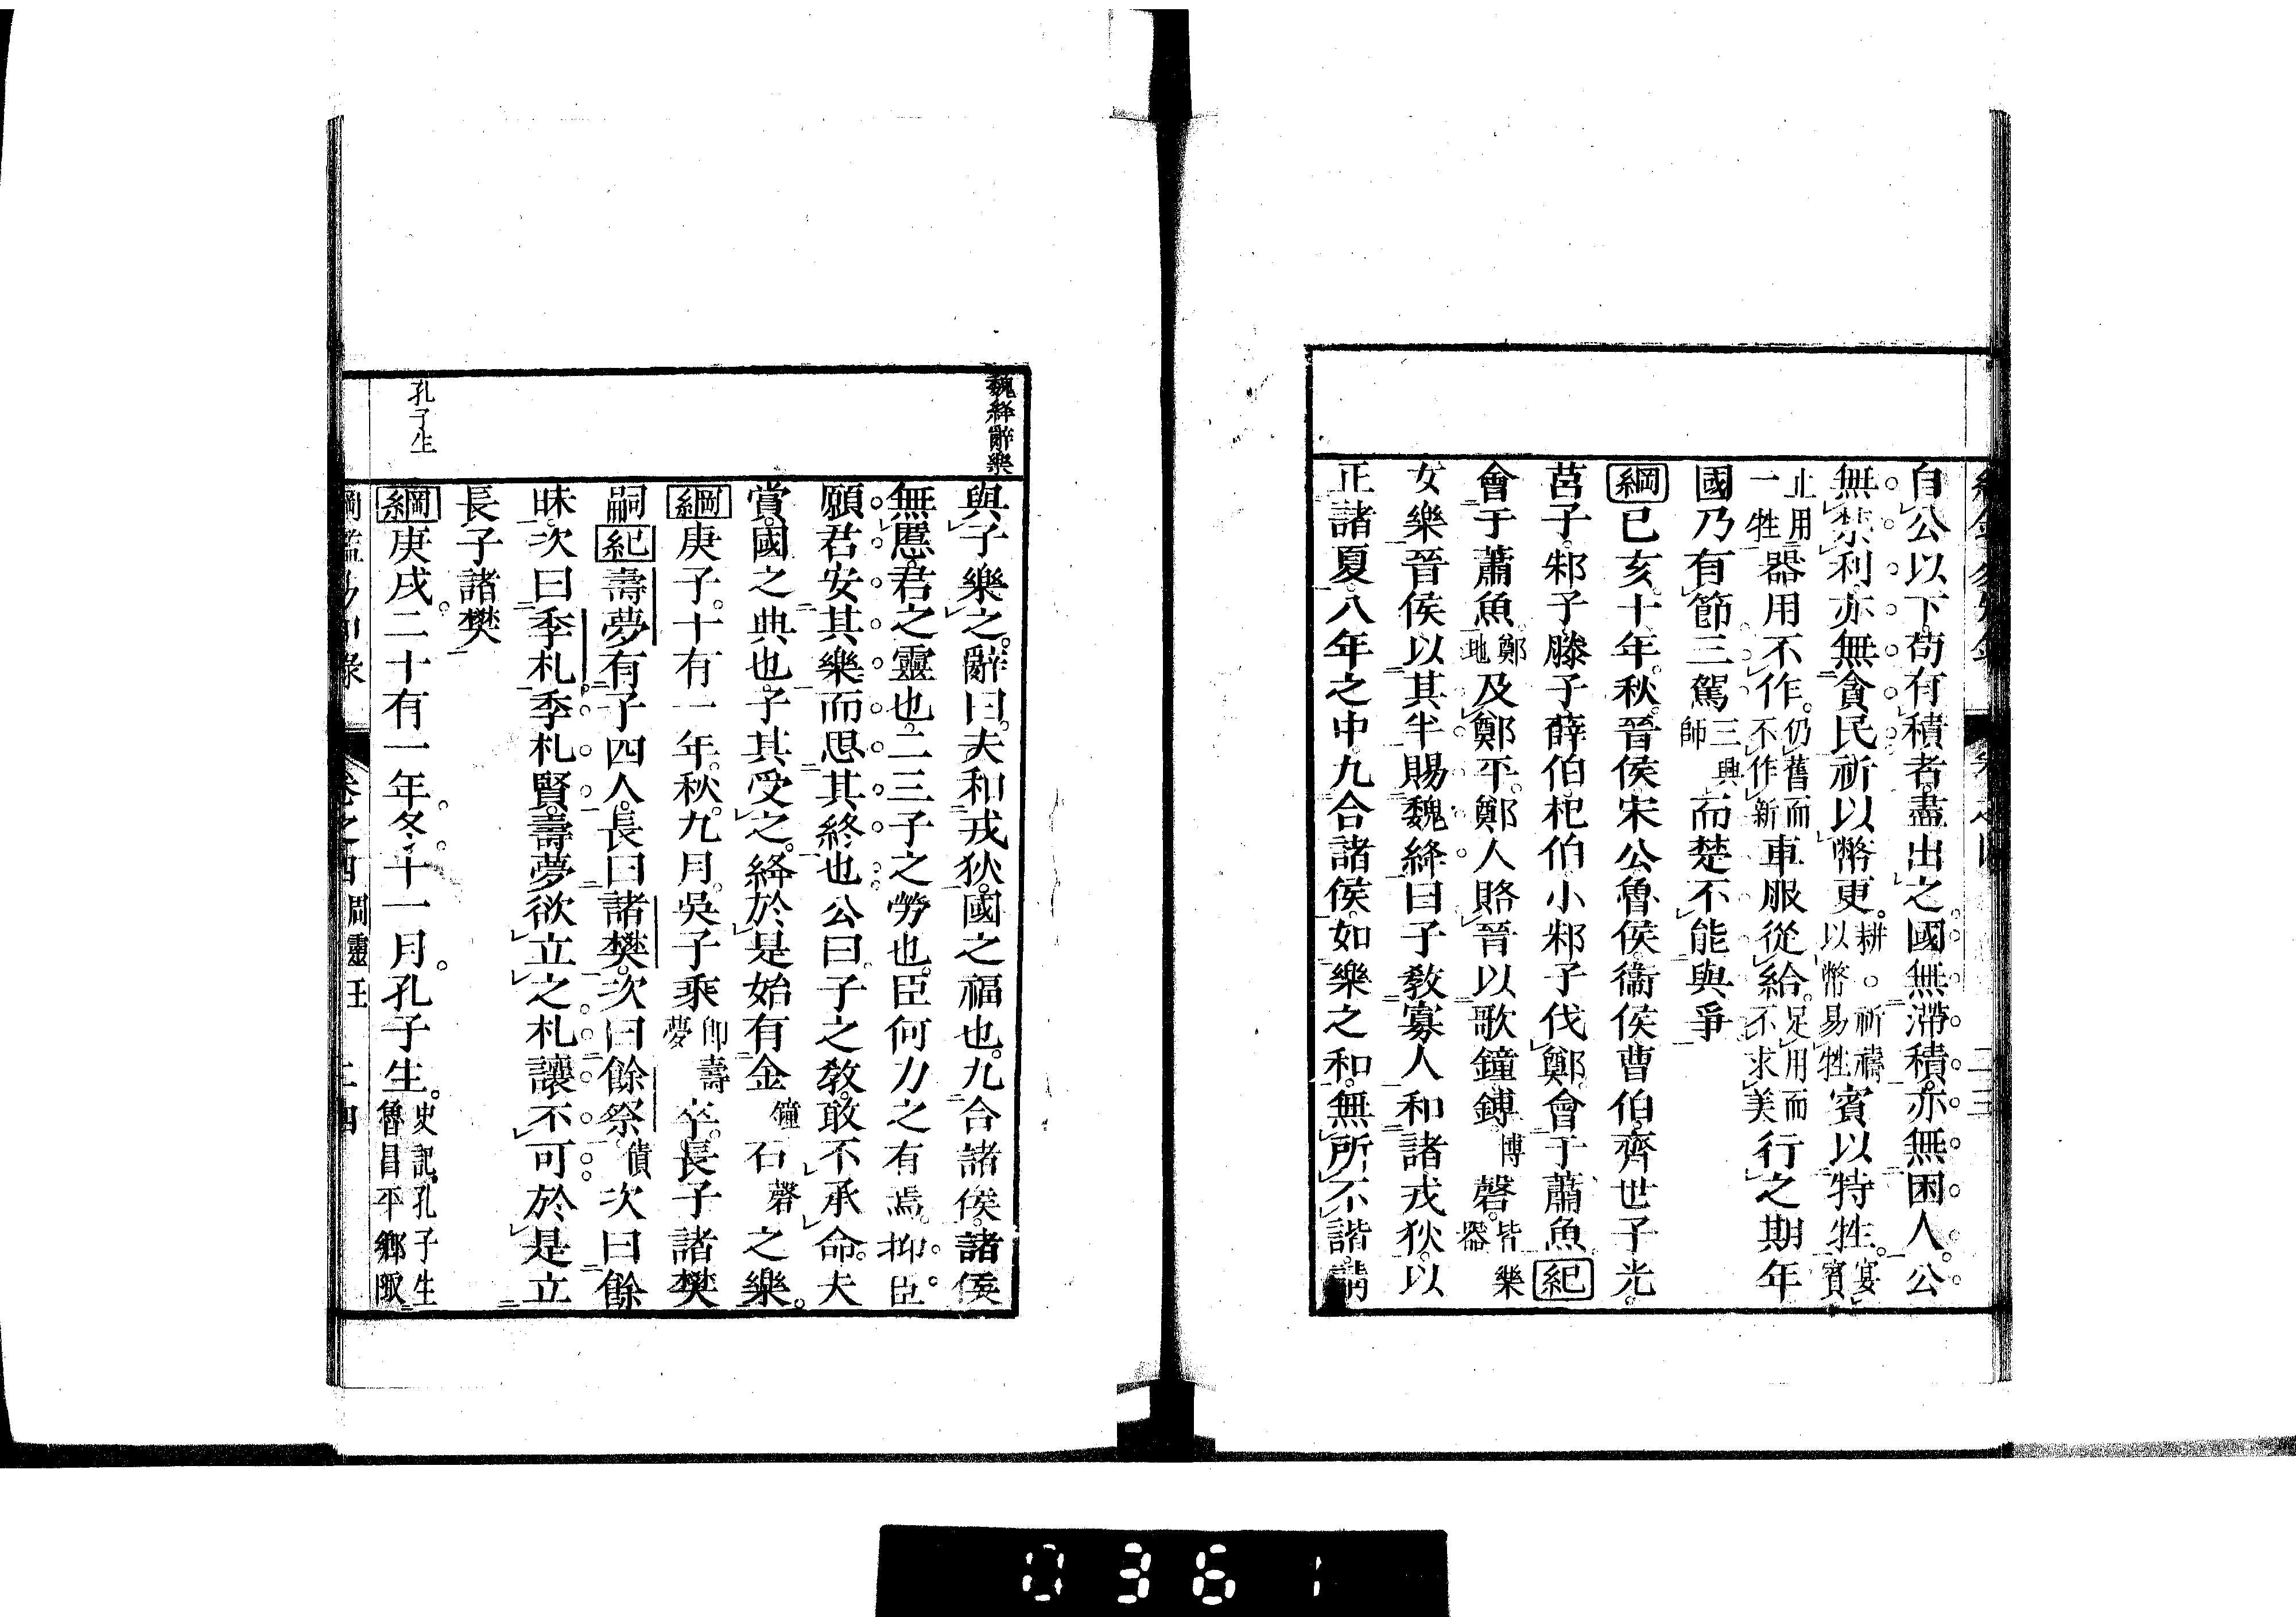 自公以下。苟有積者。盡出之。國無滯積。亦無困人。公
無禁利。亦無貪民。祈以幣更。耕。祈禱以幣易牲賓以特牲。宴賓
止用一牲器用不作。仍舊而不作新車服從給。足用而不求美行之期年
國乃有節。三駕三興師而楚不能與爭
綱己亥。十年。秋。晉侯宋公魯侯衞侯曹伯。齊世子光。
莒子。邾子滕子薛伯。杞伯小邾子伐鄭。會于蕭魚。紀
會于蕭魚。鄭地及鄭平。鄭人賂晉以歌鐘鎛博磬。皆樂器
女樂。晉侯以其半賜魏絳曰子敎寡人和諸戎狄。以
正諸夏。八年之中。九合諸侯。如樂之和。無所不諧。請
魏絳辭樂
與子樂之。辭曰。夫和戎狄。國之福也。九合諸侯。諸侯
無慝。君之靈也。二三子之勞也。臣何力之有焉。抑臣
願君安其樂而思其終也公曰子之敎。敢不承命。夫
賞。國之典也。子其受之。絳於是始有金鐘石磬之樂。
綱庚子。十有一年。秋。九月。吳子乘卽壽夢卒。長子諸樊
嗣紀壽夢有子四人。長曰諸樊。次曰餘祭。債次曰餘
昧。次曰季札。季札賢。壽夢欲立之。札讓不可於是立
長子諸樊
孔子生
綱庚戌。二十有一年。冬。十一月。孔子生。史記。孔子生魯昌平鄉陬
卷之四 周靈王 二四
0361